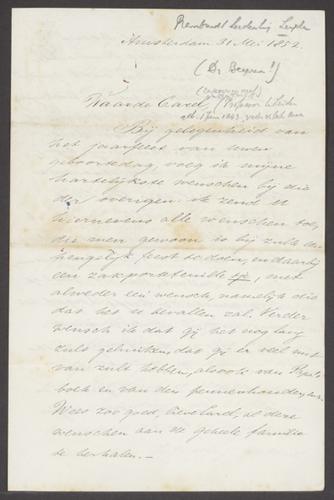 Rembrandt
Amsterdam 31 Mei 1852.
(Dr
Waarde Carel,
Bij gelegenheid van
het jaarfeest van uwen
geboortedag, voeg ik mijne
hartelijkste wenschen bij die
der overigen. Ik zend U
hiernevens alle wenschen toe,
die men gewoon is bij zulk een
heugelijk feest te doen, en daarbij
een zakportefeuille, met
alweder een wensch, namelijk die
dat het U bevallen zal. Verder
wensch ik dat gij het nog lang
zult gebruiken, dat gij er veel nut
van zult hebben, alsook van
boek en van den pennenhouder, enz.
Wees zoo goed, lieve Carel, al deze
wenschen aan de geheele familie
te herhalen. —